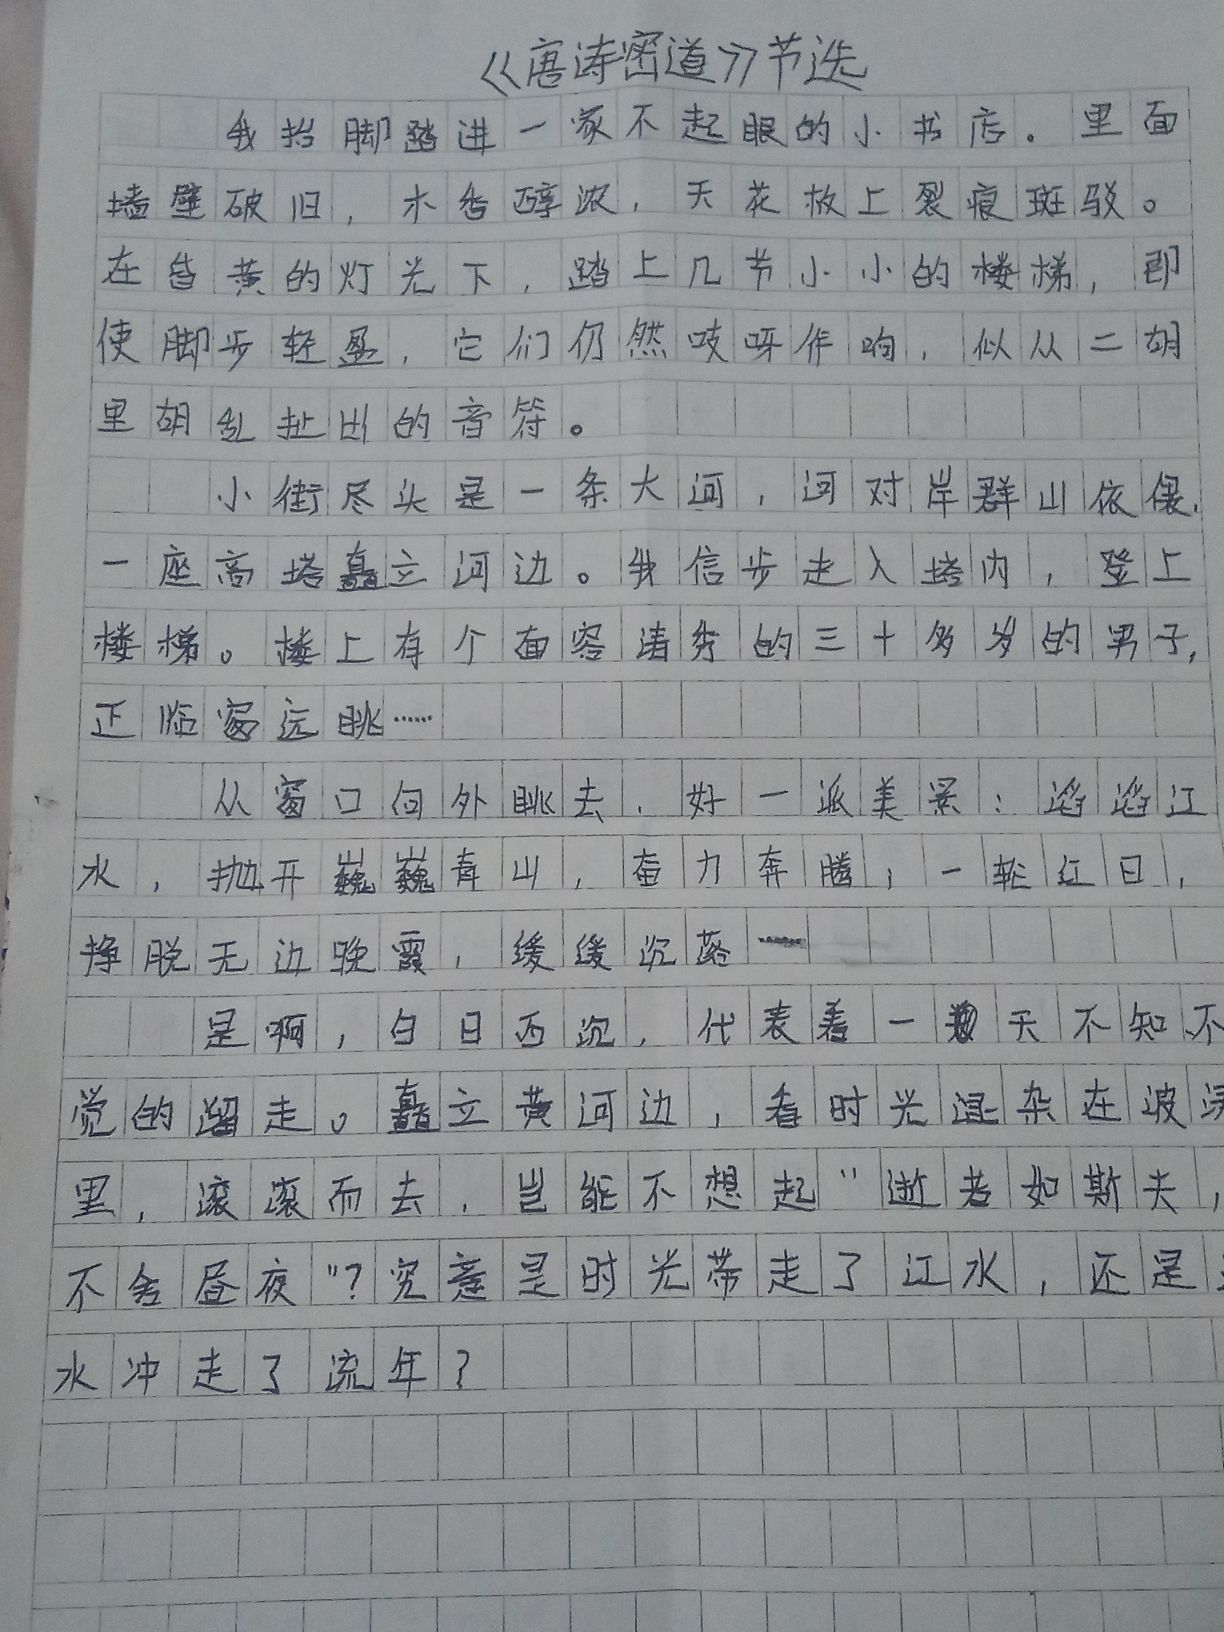 《唐诗密道》节选
我抬脚踏进一家不起眼的小书店。里面
墙壁破旧，木香醇浓，天花板上裂痕斑驳。
在昏黄的灯光下，踏上几节小小的楼梯，即
使脚步轻盈，它们仍然吱呀作响，似从二胡
里胡乱扯出的音符。
小街尽头是一条大河，河对岸群山依偎，
一座高塔矗立河边。我信步走入塔内，登上
楼梯。楼上有个面容清秀的三十多岁的男子，
正临窗远眺……
从窗口向外眺去，好一派美景：滔滔江
水，抛开巍巍青山，奋力奔腾；一轮红日，
挣脱无边晚霞，缓缓沉落
是啊，白日西沉，代表着一天不知不
觉的溜走。矗立黄河边，看时光混杂在波涛
里，滚滚而去，岂能不想起"逝者如斯夫，
不舍昼夜"？究竟是时光带走了江水，还是
水冲走了流年？